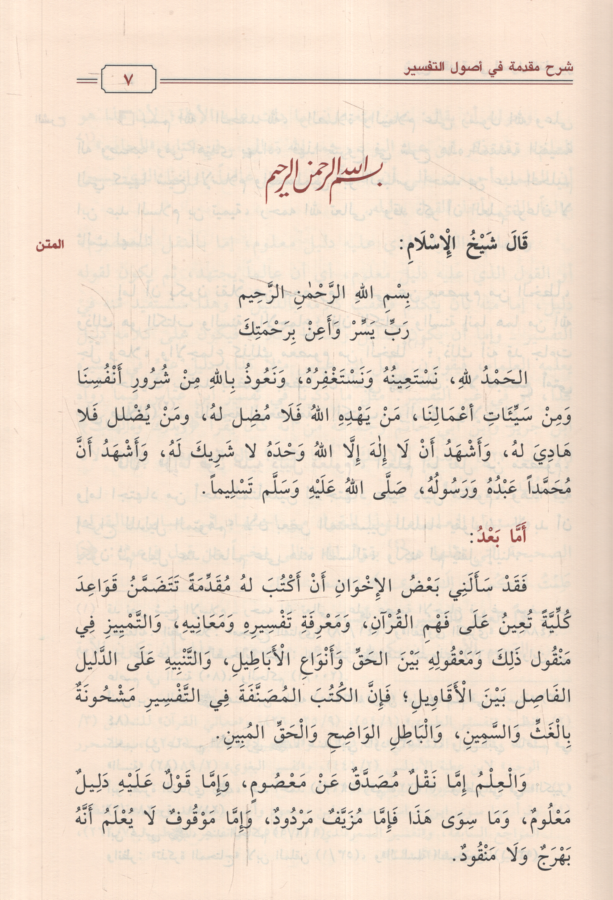 شرح مقدمة في أصول التفسير
٧
بسم الله الرحمن الرحيم
المتن
قَالَ شَيْخُ الْإِسْلَامِ:
بِسْمِ اللهِ الرَّحْمٰنِ الرَّحِيمِ
رَبِّ يَسِّرْ وَأَعِنْ بِرَحْمَتِكَ
الحَمْدُ لِلهِ، نَسْتَعِينُهُ وَنَسْتَغْفِرُهُ، وَنَعُوذُ بِاللهِ مِنْ شُرُورِ أَنْفُسِنَا
وَمِنْ سَيِّئَاتِ أَعْمَالِنَا، مَنْ يَهْدِهِ اللهُ فَلَا مُضِل لهُ، ومَنْ يُضْلل فَلا
هَادِيَ لهُ، وَأَشْهَدُ أَنْ لَا إِلٰهَ إِلَّا اللهُ وَحْدَهُ لا شَرِيكَ لَهُ، وَأَشْهَدُ أَنَّ
مُحَمَّداً عَبْدُهُ وَرَسُولُهُ، صَلَّى اللهُ عَلَيْهِ وَسَلَّم تَسْلِيماً.
أَمَّا بَعْدُ:
فَقَدْ سَأَلَنِي بَعْضُ الإِخْوَانِ أَنْ أَكْتُبَ لهُ مُقَدِّمَةً تَتَضَمَّنُ قَوَاعِدَ
كُلِّيَّةً تُعِينُ عَلَى فَهْمِ القُرْآنِ، وَمَعْرِفَةِ تَفْسِيرِهِ وَمَعَانِيهِ، وَالتَّمْيِيزِ فِي
مَنْقُولِ ذَلِكَ وَمَعْقُولِهِ بَيْنَ الحَقِّ وَأَنْوَاعِ الْأَبَاطِيلِ، وَالتَّنْبِيهِ عَلَى الدَّلِيل
الفَاصِلِ بَيْنَ الْأَقَاوِيلِ؛ فَإِنَّ الْكُتُبَ المُصَنَّفَةَ فِي التَّفْسِيرِ مَشْحُونَةٌ
بِالْغَثِّ وَالسَّمِينِ، وَالْبَاطِلِ الوَاضِحِ وَالْحَقِّ المُبِينِ.
وَالْعِلْمُ إِمَّا نَقْلٌ مُصَدَّقٌ عَنْ مَعْصُومٍ، وَإِمَّا قَوْلٌ عَلَيْهِ دَلِيلٌ
مَعْلُومٌ، وَمَا سِوَى هَذَا فَإِمَّا مُزَيَّفٌ مَرْدُودٌ، وَإِمَّا مَوْقُوفٌ لَا يُعْلَمُ أَنَّهُ
بَهْرَجٌ وَلَا مَنْقُودٌ.